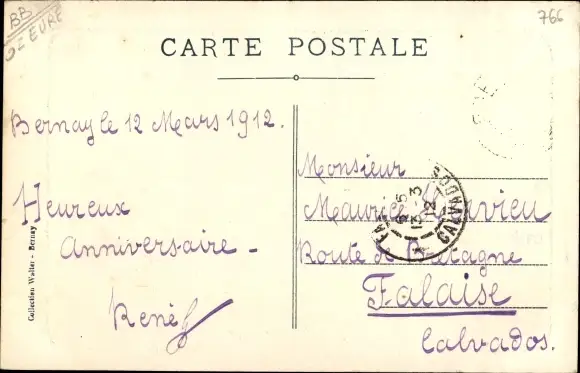 BB
766
CARTE POSTALE
Bernay le 12 Mars 1912.
Heureux
Anniversaire -
René
Collection Walter - Bernay
Monsieur
Maurice
Route de Bretagne
Falaise
Calvados.
6-5
13-3
12
CALVADOS